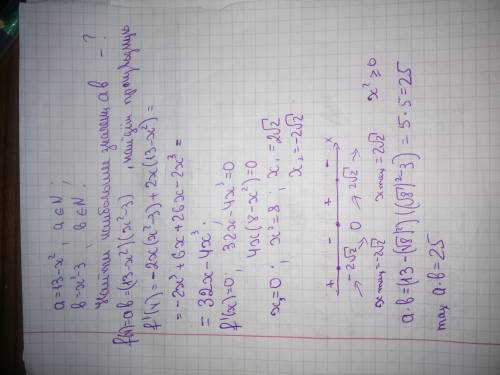 a=13-x²; a∈N;
b=x²-3; b∈N;
Найти наибольшее значен. ab - ?
f(x)=ab=(13-x²)(x²-3), найдём производную
f'(x)=-2x(x²-3)+2x(13-x²)=
=-2x³+6x+26x-2x³=
=32x-4x³;
f'(x)=0; 32x-4x³=0
4x(8-x²)=0
x₃=0; x²=8; x₁=2√2
x₂=-2√2
+ - + - x
-2√2 0 2√2
↗ ↗ ↘
x max=-2√2 x max=2√2 x²≥0
a·b=(13-(√8)²)((√8)²-3)=5·5=25
max a·b=25